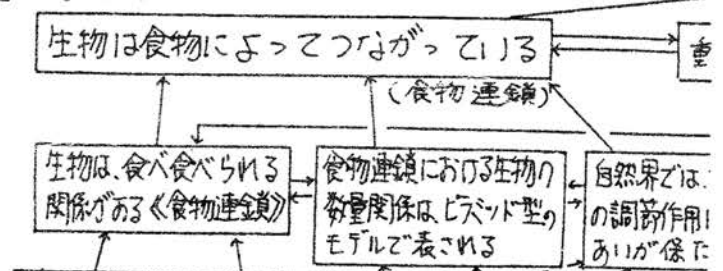 生物は食物によってつながっている
重
(食物連鎖)
生物は、食べ食べられる
関係がある《食物連鎖》
食物連鎖における生物の
数量関係は、ピラミッド型の
モデルで表される
自然界では、
の調節作用
あいが保た